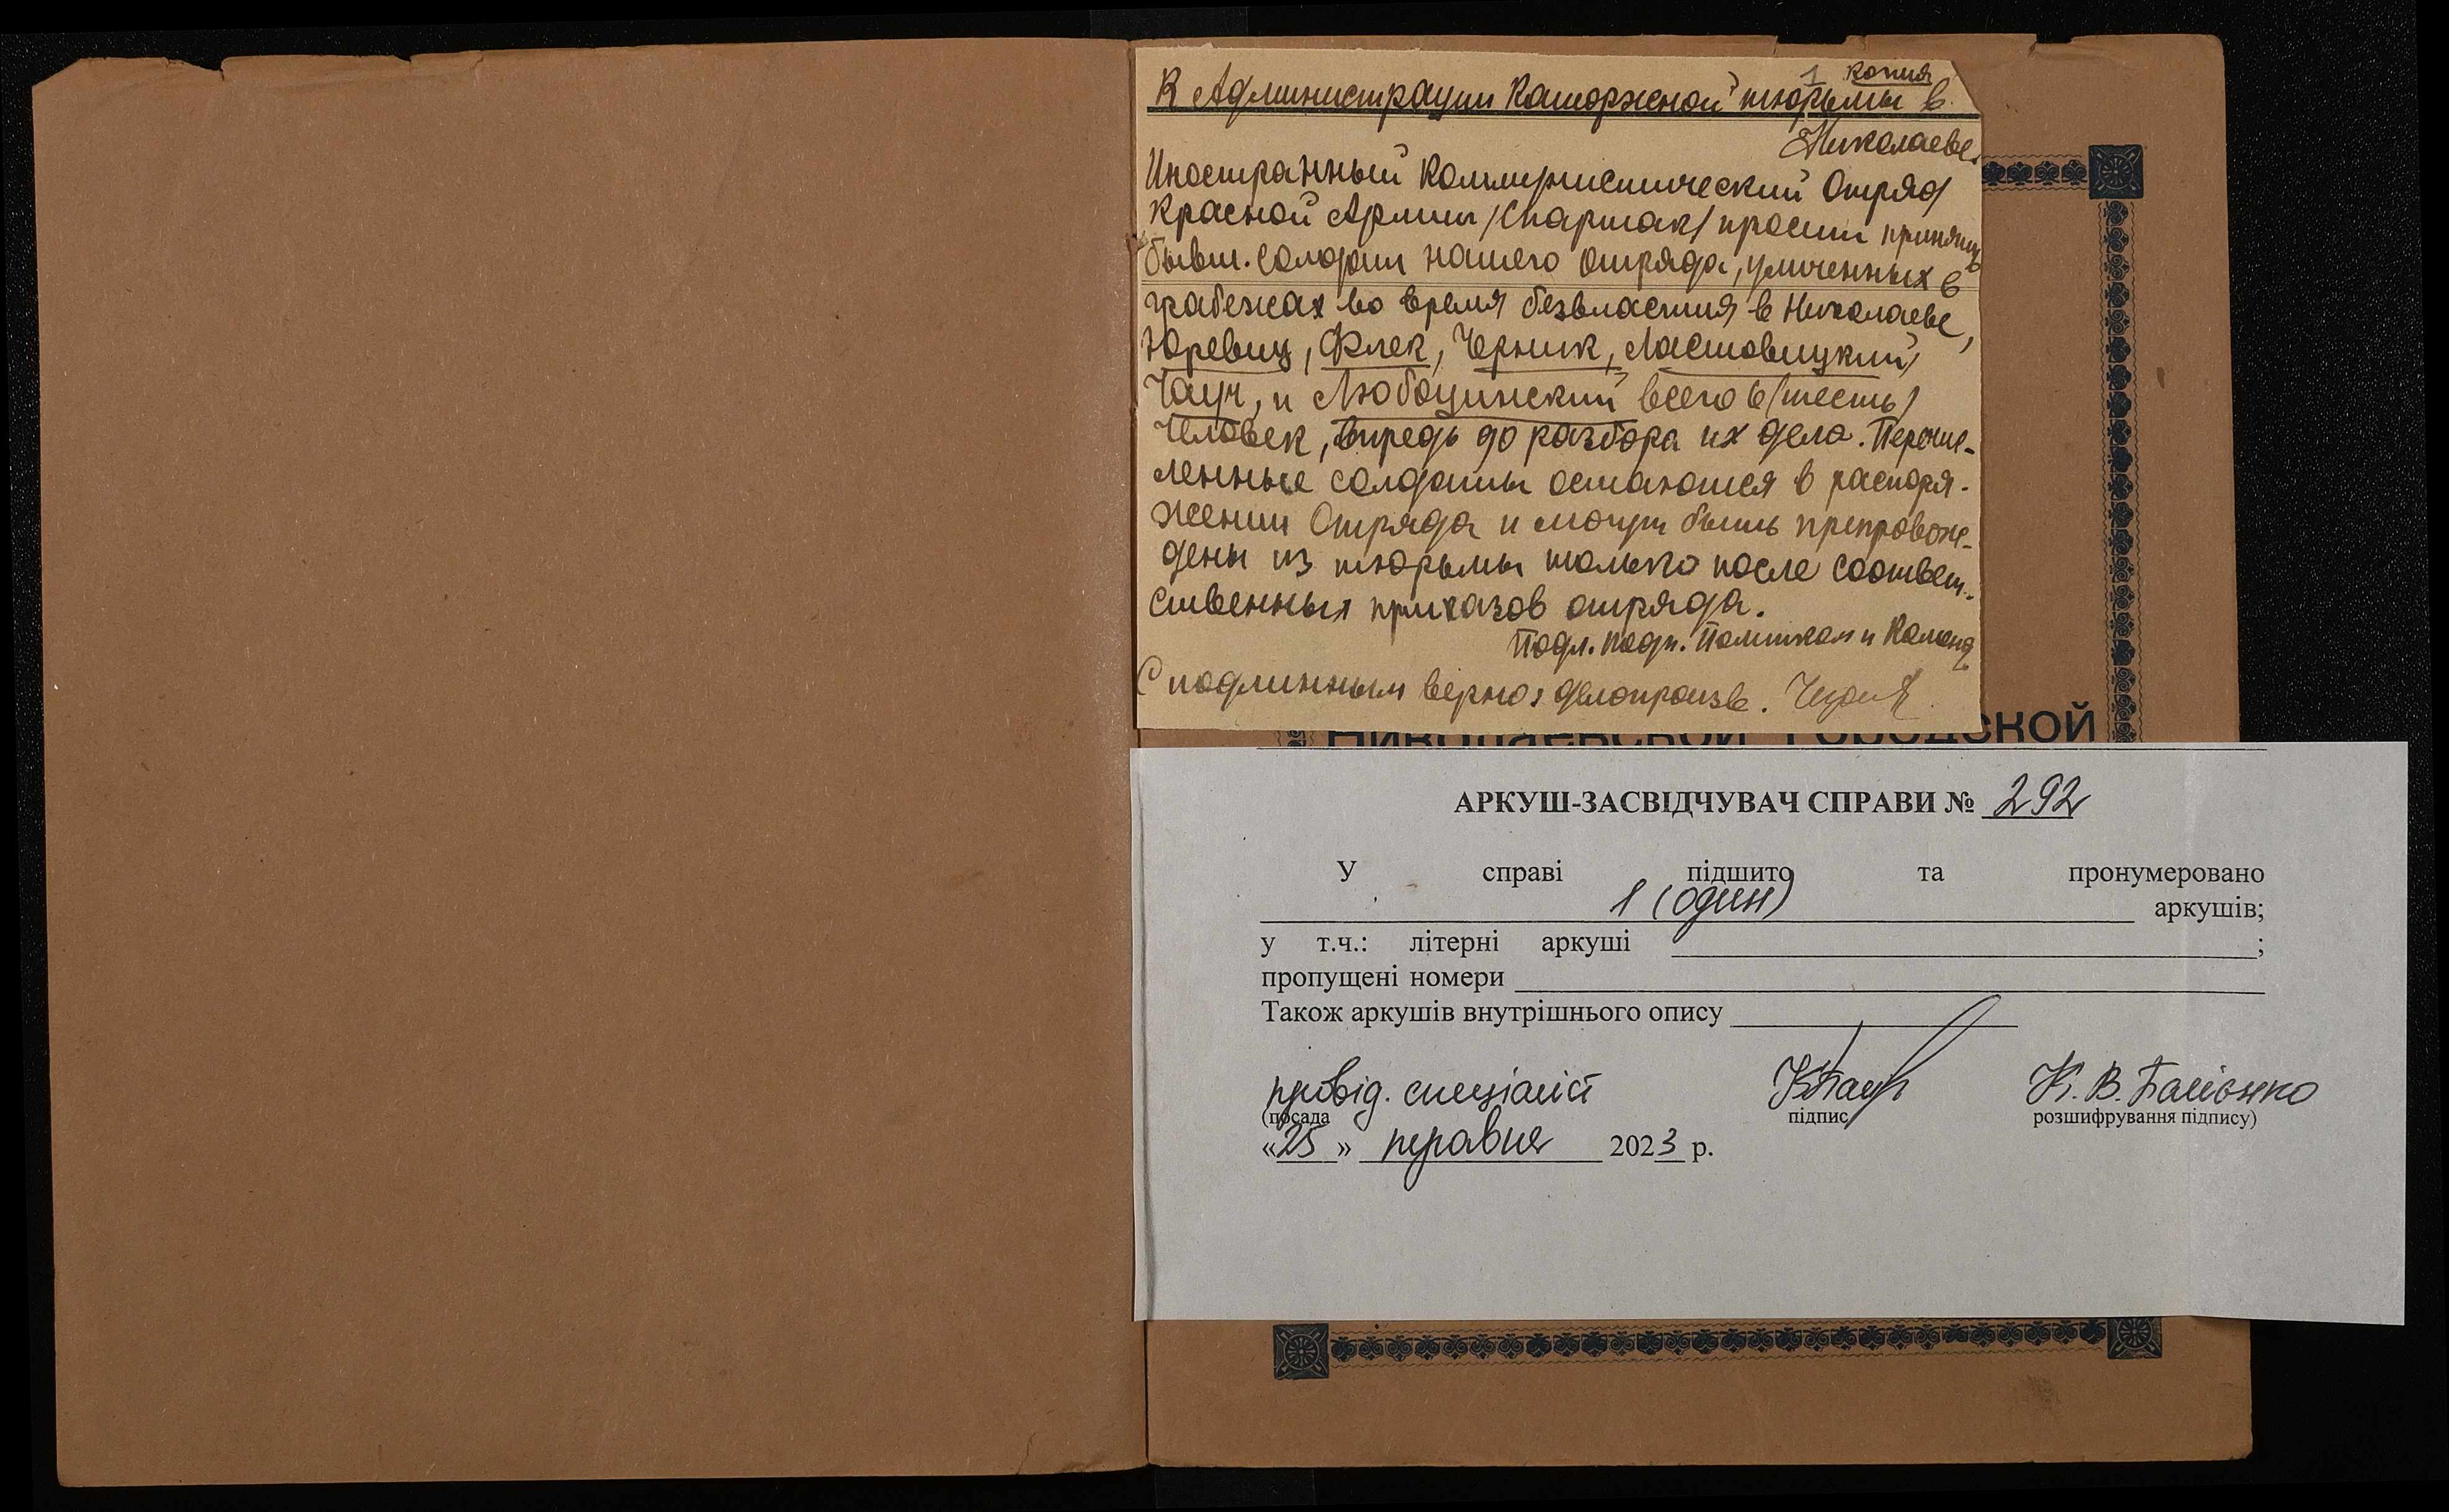 1 копия
К Администрации Каторжной тюрьмы в
Николаеве.
Иностранный Коммунистический Отряд
Красной Армии /Спартак/ просит принять
бывш. солдат нашего отряда, уличенных в
грабежах во время безвластия в Николаеве,
Юревиц, Флек, Черник, Ластовицкий,
Чауч, и Любощинский всего 6 /шесть/
человек, впредь до разбора их дела. Перечис-
ленные солдаты остаются в распоря-
жении Отряда и могут быть препровож-
дены из тюрьмы только после соответ-
ственных приказов отряда.
Подл. подп. Политком и Команд
С подлинным верно: делопроизв.
Николаевской Городской
АРКУШ-ЗАСВІДЧУВАЧ СПРАВИ № 292
У справі підшито та пронумеровано
1 (один) аркушів;
у т.ч.: літерні аркуші ;
пропущені номери
Також аркушів внутрішнього опису
провід. спеціаліст К. В.
(посада підпис розшифрування підпису)
«25» травня 2023 р.